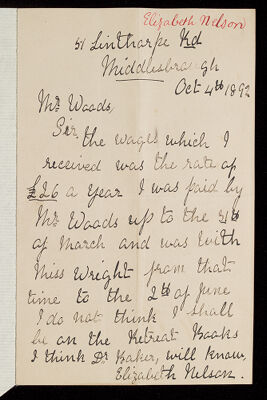 Elizabeth Nelson
51 Linthorpe Rd
Middlesbrough
Oct 4th 1892
Mr Woods,
Sir, the wages which I
received was the rate of
£26 a year I was paid by
Mr Woods up to the 4th
of March and was with
Miss Wright from that
time to the 2d of June
I do not think I shall
be on the Retreat Books
I think Dr Baker, will know,
Elizabeth Nelson.